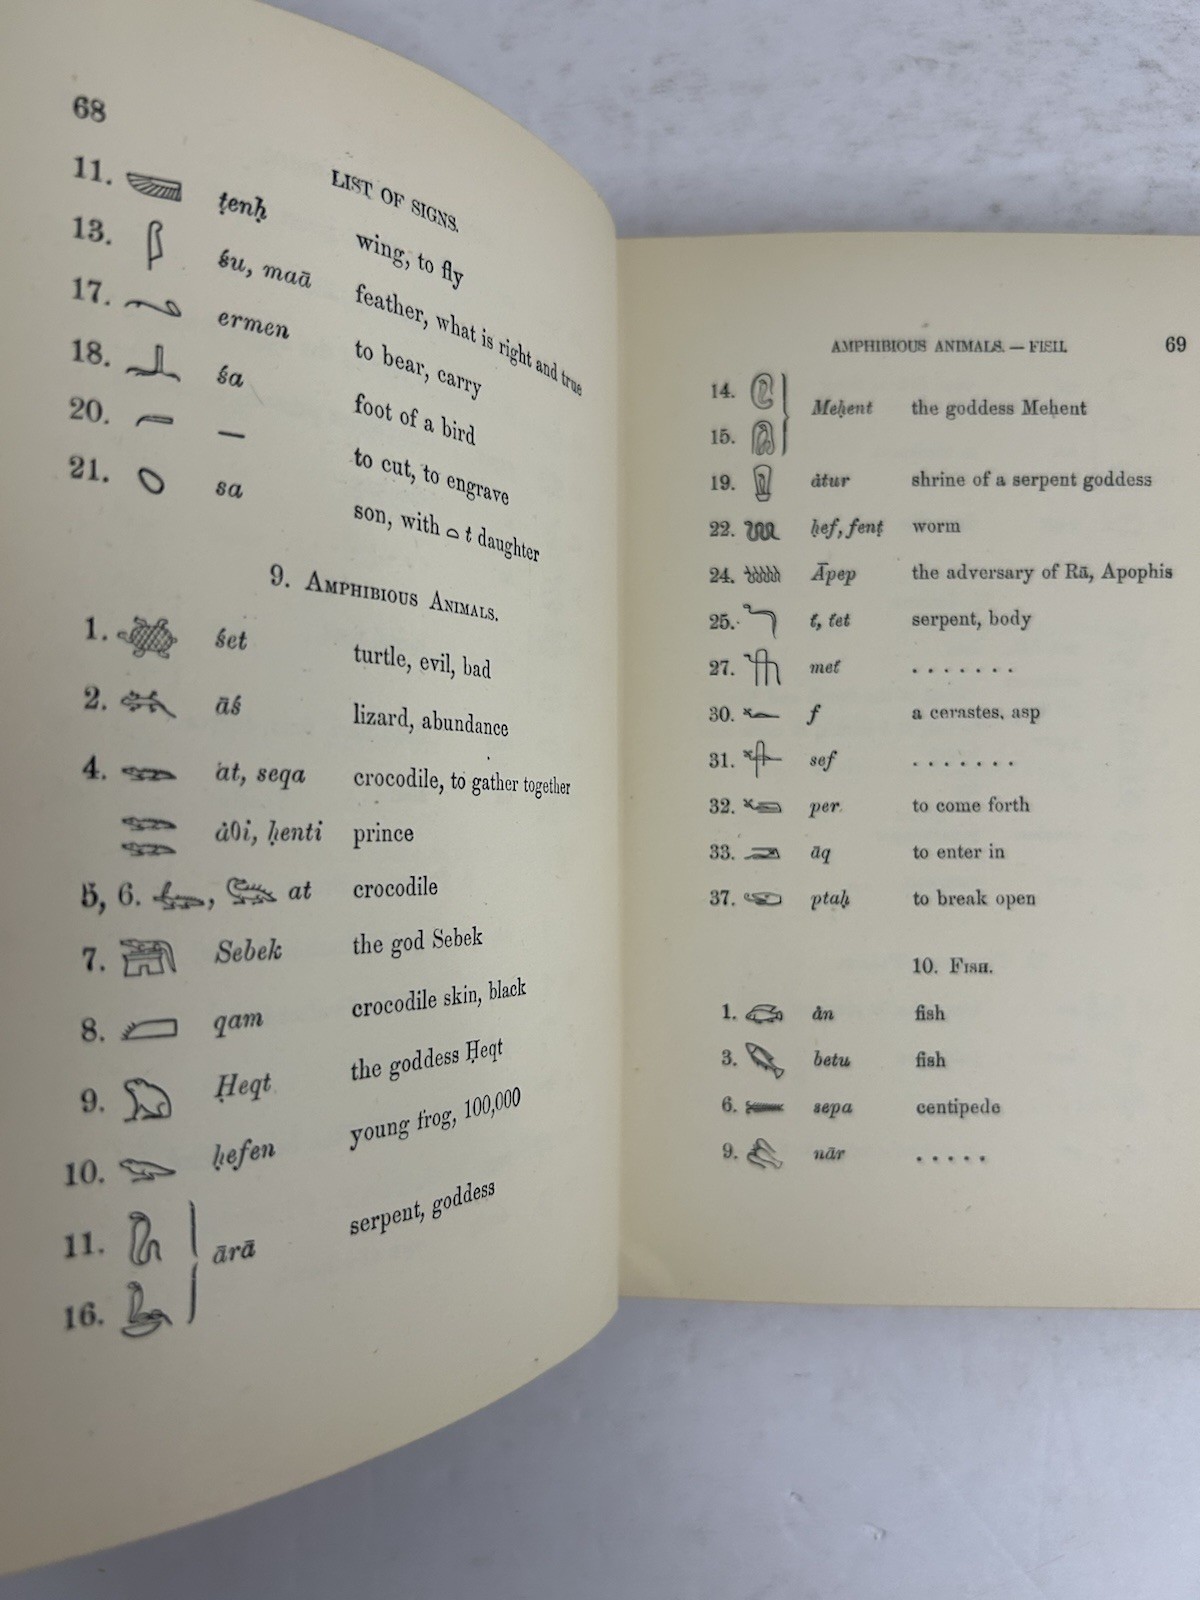 68
LIST OF SIGNS.
11. 𓆃 ṭenḥ wing, to fly
13. 𓆄 śu, maā feather, what is right and true
17. ermen to bear, carry
18. śa foot of a bird
20. — to cut, to engrave
21. sa son, with 𓏏 t daughter
9. AMPHIBIOUS ANIMALS.
1. śet turtle, evil, bad
2. āś lizard, abundance
4. at, seqa crocodile, to gather together
ȧθi, ḥenti prince
5, 6. , at crocodile
7. Sebek the god Sebek
8. qam crocodile skin, black
9. Ḥeqt the goddess Ḥeqt
10. ḥefen young frog, 100,000
11.
ārā serpent, goddess
16.
AMPHIBIOUS ANIMALS. — FISH. 69
14.
Meḥent the goddess Meḥent
15.
19. ȧtur shrine of a serpent goddess
22. ḥef, fenṭ worm
24. Āpep the adversary of Rā, Apophis
25. t́, t́et serpent, body
27. met́ . . . . . . .
30. f a cerastes, asp
31. sef . . . . . . .
32. per to come forth
33. āq to enter in
37. ptaḥ to break open
10. FISH.
1. ȧn fish
3. betu fish
6. sepa centipede
9. nār . . . . .